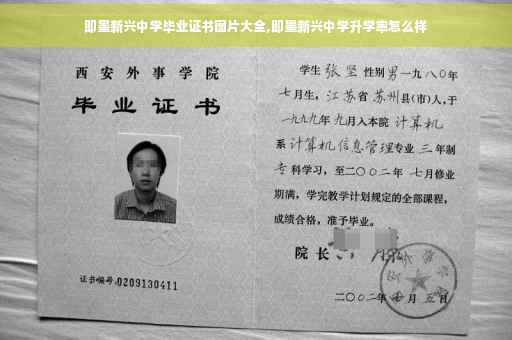 即墨新兴中学毕业证书图片大全,即墨新兴中学升学率怎么样
西安外事学院
毕业证书
证书编号:0209130411
学生 张坚 性别 男 一九八〇年
七月生, 江苏省 苏州县(市)人,于
一九九九年 九月入本院 计算机
系 计算机信息管理专业 三 年制
专科学习, 至二〇〇二年 七月修业
期满, 学完教学计划规定的全部课程,
成绩合格, 准予毕业。
院长
二〇〇二年 月 五日